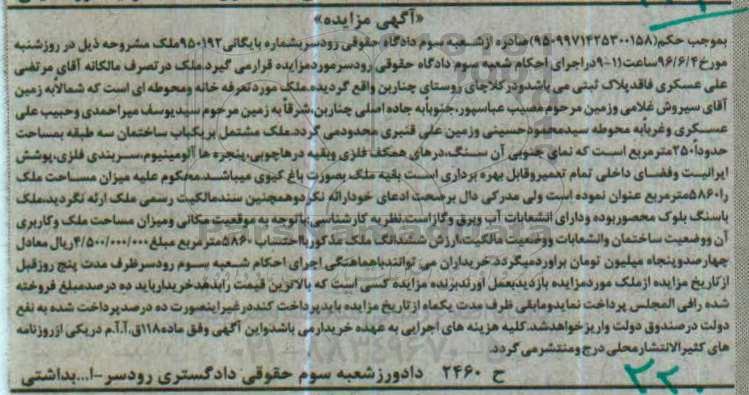 «آگهی مزایده»
بموجب حکم(۹۵۰۹۹۷۱۴۲۵۳۰۰۱۵۸)صادره ازشعبه سوم دادگاه حقوقی رودسربشماره بایگانی۹۵۰۱۹۲ملک مشروحه ذیل در روزشنبه
مورخ۹۶/۶/۴ساعت(۱۱-۹)دراجرای احکام شعبه سوم دادگاه حقوقی رودسرموردمزایده قرارمی گیرد.ملک درتصرف مالکانه آقای مرتضی
علی عسکری فاقدپلاک ثبتی می باشدودرکلاچای روستای چناربن واقع گردیده.ملک موردتعرفه خانه ومحوطه ای است که شمالابه زمین
آقای سیروش غلامی وزمین مرحوم مصیب عباسپور،جنوبابه جاده اصلی چناربن،شرقابه زمین مرحوم سیدیوسف میراحمدی وحبیب علی
عسکری وغربابه محوطه سیدمحمودحسینی وزمین علی قنبری محدودمی گردد.ملک مشتمل بریکباب ساختمان سه طبقه بمساحت
حدودا۲۵۰مترمربع است که نمای جنوبی آن سنگ،درهای همکف فلزی وبقیه درهاچوبی،پنجره ها آلومینیوم،سربندی فلزی،پوشش
ایرانیت وفضای داخلی تمام تعمیروقابل بهره برداری است بقیه ملک بصورت باغ کیوی میباشد.محکوم علیه میزان مساحت ملک
را۵۸۶۰مترمربع عنوان نموده است ولی مدرکی دال برصحت ادعای خودارائه نکردوهمچنین سندمالکیت رسمی ملک ارئه نگردید.ملک
باسنگ بلوک محصوربوده ودارای انشعابات آب وبرق وگازاست.نظریه کارشناسی:باتوجه به موقعیت مکانی ومیزان مساحت ملک وکاربری
آن ووضعیت ساختمان وانشعابات ووضعیت مالکیت،ارزش ششدانگ ملک مذکوربااحتساب ۵۸۶۰مترمربع مبلغ۴/۵۰۰/۰۰۰/۰۰۰ریال معادل
چهارصدوپنجاه میلیون تومان برآوردمیگردد.خریداران می توانندباهماهنگی اجرای احکام شعبه سوم رودسرظرف مدت پنج روزقبل
ازتاریخ مزایده ازملک موردمزایده بازدیدبعمل آورند.برنده مزایده کسی است که بالاترین قیمت رابدهد.خریدارباید ده درصدمبلغ فروخته
شده رافی المجلس پرداخت نمایدومابقی ظرف مدت یکماه ازتاریخ مزایده بایدپرداخت کند.درغیراینصورت ده درصدپرداخت شده به نفع
دولت درصندوق دولت واریزخواهدشد.کلیه هزینه های اجرایی به عهده خریدارمی باشد.واین آگهی وفق ماده۱۱۸ق.آ.آ.م دریکی ازروزنامه
های کثیرالانتشارمحلی درج ومنتشرمی گردد.
ح ۲۴۶۰ دادورزشعبه سوم حقوقی دادگستری رودسر-ا...بداشتی